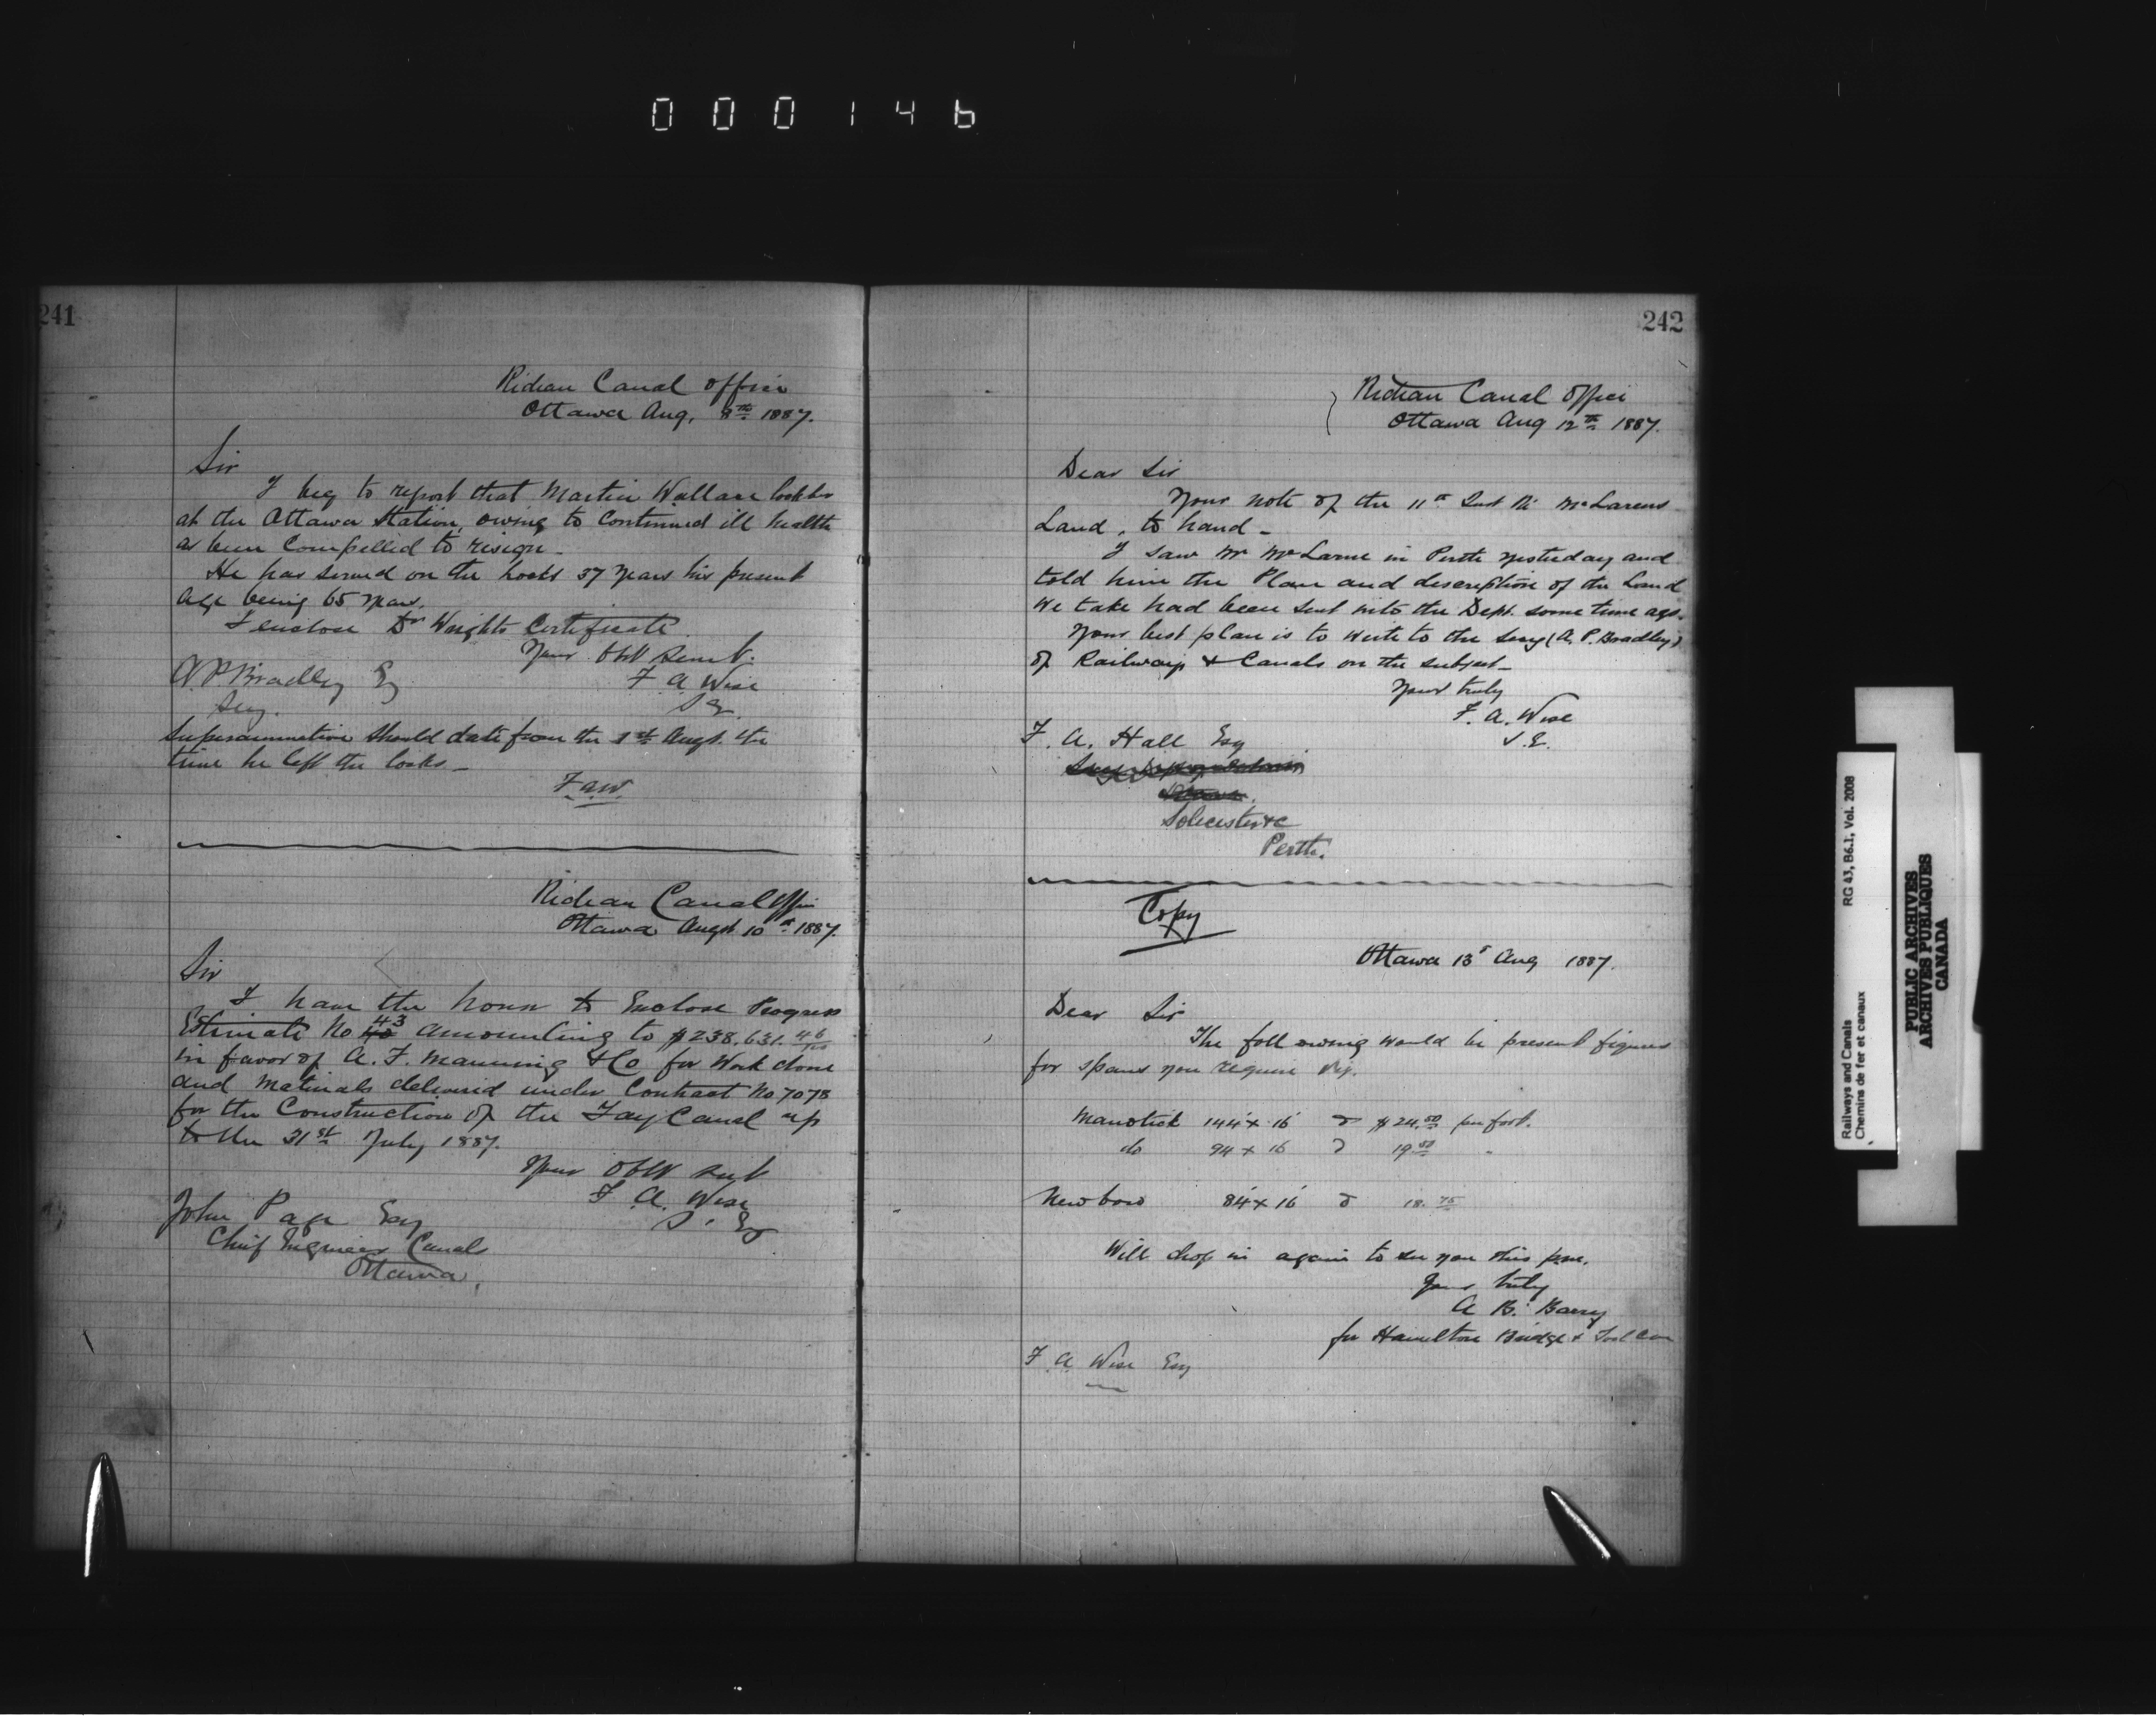 000146
241
Rideau Canal Office
Ottawa Aug. 9th 1887.
Sir
I beg to report that Martin Wallace
at the Ottawa Station, owing to continued ill health
as been compelled to resign _
He has served on the Locks 37 years his present
age being 65 years.
I enclose Dr Wrights Certificate
Your Obt Servt.
A. P. Bradley Esq
F A Wise
Secy.
S E.
Superannuation should date from the 1st Augt. the
time he left the locks _
F.A.W.
Rideau Canal Office
Ottawa Augst 10th 1887.
Sir
I have the honor to Enclose Progress
Estimate No 43 amounting to $238,631.46/100
in favor of A. F. Manning & Co for Work done
and Materials delivered under Contract No 7078
for the Construction of the Tay Canal up
to the 31st July 1887.
Your Obt Sevt
F. A. Wise
S. Eg
John Page Esq
Chief Engineer Canals
Ottawa.
242
Rideau Canal Office
Ottawa Aug 12th 1887.
Dear Sir
Your note of the 11th Inst Re McLarens
Land, to hand _
I saw Mr McLaren in Perth yesterday and
told him the Plan and description of the Land
we take had been sent into the Dept. some time ago.
Your best plan is to write to the Secy (A. P. Bradley)
of Railways & Canals on the subject _
Your truly
F. A. Wise
S.E.
F. A. Hall Esq
Solicester &c
Perth.
Copy
Ottawa 13 Aug 1887.
Dear Sir
The following would be present figures
for spans you require viz.
Manotick 144' x 16' @ $24.50 per foot.
do 94 x 16 @ 19.50 "
Newboro 84' x 16' @ 18.75
Will drop in again to see you this p.m.
Yours truly
A. B. Barry
for Hamilton Bridge & Tool Co
F. A. Wise Esq
Railways and Canals
Chemins de fer et canaux
RG 43, B6.1, Vol. 2008
PUBLIC ARCHIVES
ARCHIVES PUBLIQUES
CANADA